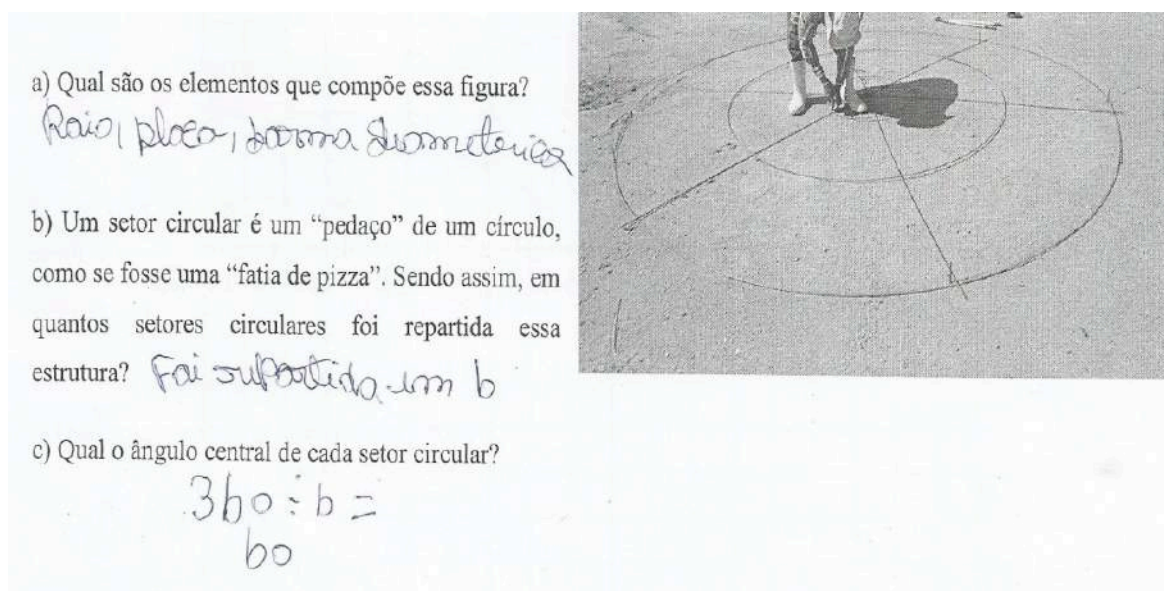 a) Qual são os elementos que compõe essa figura?
Raio, placa, forma Geometerica
b) Um setor circular é um “pedaço” de um círculo,
como se fosse uma “fatia de pizza”. Sendo assim, em
quantos setores circulares foi repartida essa
estrutura? Foi repartida em 6
c) Qual o ângulo central de cada setor circular?
360 ÷ 6 =
60